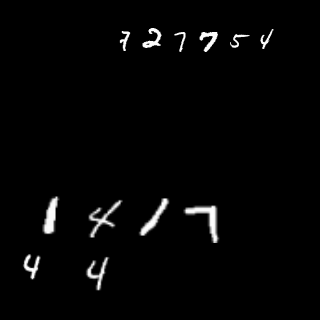 727754
1417
44